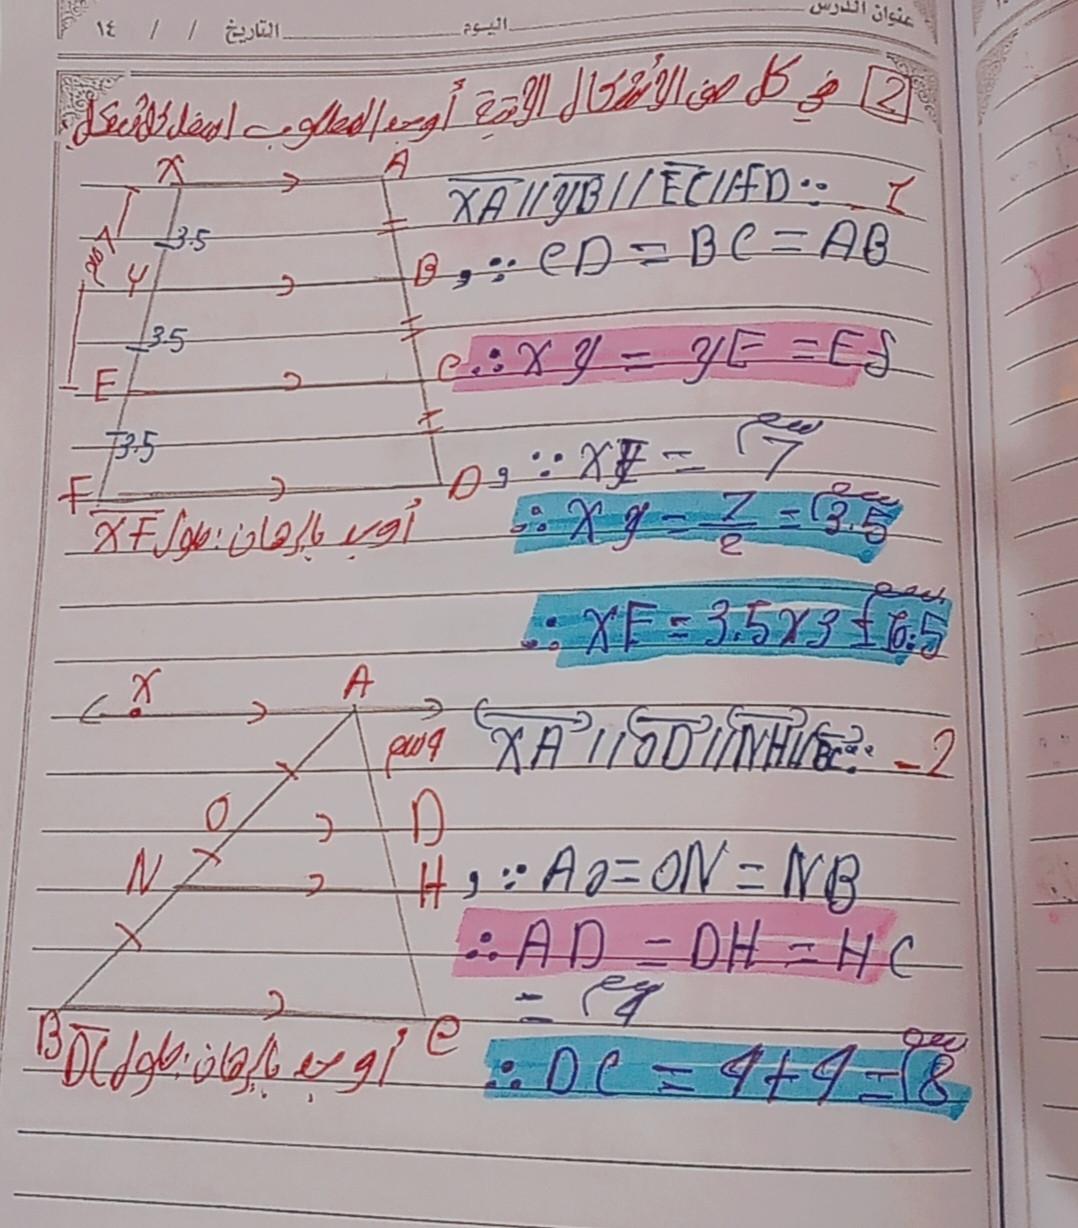 عنوان الدرس
اليوم
التاريخ / / ١٤
2 في كل من الأشكال الآتية أوجد المطلوب أسفل كل شكل
1- ∵ XA // YB // EC // FD
, ∵ CD = BC = AB
∴ XY = YE = EF
, ∵ XE = 7 سم
∴ XY = 7/2 = 3.5 سم
∴ XF = 3.5 x 3 =
X A
3.5
7 سم
Y B
3.5
E C
3.5
F D
أوجد بالبرهان: طول XF
2- ∵ XA // OD // NH // BC
, ∵ AO = ON = NB
∴ AD = DH = HC
= 4 سم
∴ DC = 4 + 4 = 8 سم
X A
4 سم
O D
N H
B C
أوجد بالبرهان: طول DC